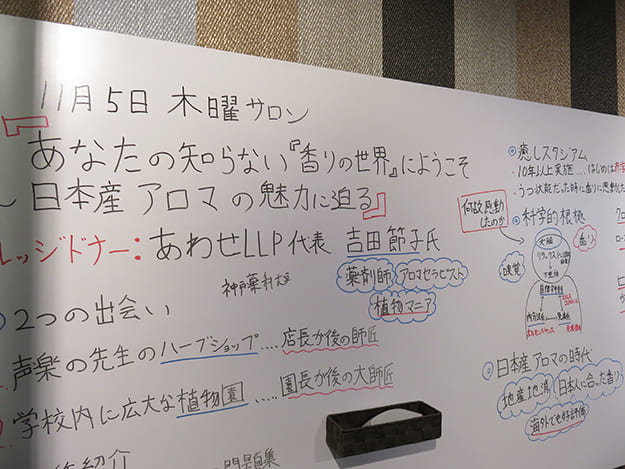 11月5日 木曜サロン
『あなたの知らない『香りの世界』にようこそ
～日本産アロマの魅力に迫る』
レッジドナー：あわせLLP代表 吉田節子氏
神戸薬科大学
薬剤師 アロマセラピスト
植物マニア
2つの出会い
声楽の先生のハーブショップ....店長が後の師匠
学校内に広大な植物園....園長が後の大師匠
紹介
問題集
癒しスタジアム
・10年以上実施....はじめは
・うつ状態だった時に香りに感動した
何故感動したのか
科学的根拠
大脳
香り
嗅覚
日本産アロマの時代
地産地消 日本人に合った香り
海外でも好評価